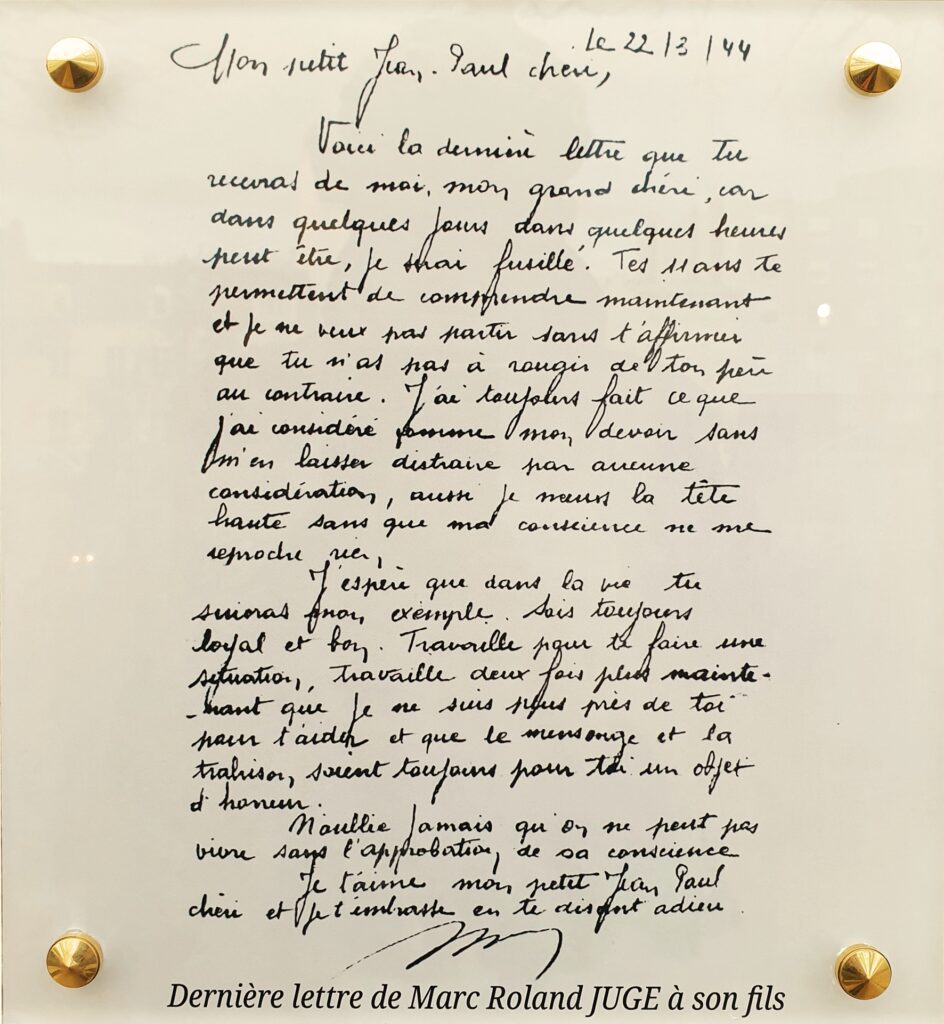 Le 22/3/44
Mon petit Jean-Paul chéri,
Voici la dernière lettre que tu
recevras de moi, mon grand chéri, car
dans quelques jours dans quelques heures
peut être, je serai fusillé. Tes 11 ans te
permettent de comprendre maintenant
et je ne veux pas partir sans t'affirmer
que tu n'as pas à rougir de ton père
au contraire. J'ai toujours fait ce que
j'ai considéré comme mon devoir sans
m'en laisser distraire par aucune
considération, aussi je meurs la tête
haute sans que ma conscience ne me
reproche rien.
J'espère que dans la vie tu
suivras mon exemple. Sois toujours
loyal et bon. Travaille pour te faire une
situation, travaille deux fois plus mainte-
-nant que je ne suis plus près de toi
pour t'aider et que le mensonge et la
trahison, soient toujours pour toi un objet
d'horreur.
N'oublie jamais qu'on ne peut pas
vivre sans l'approbation, de sa conscience
Je t'aime mon petit Jean Paul
chéri et je t'embrasse en te disant adieu.
Dernière lettre de Marc Roland JUGE à son fils